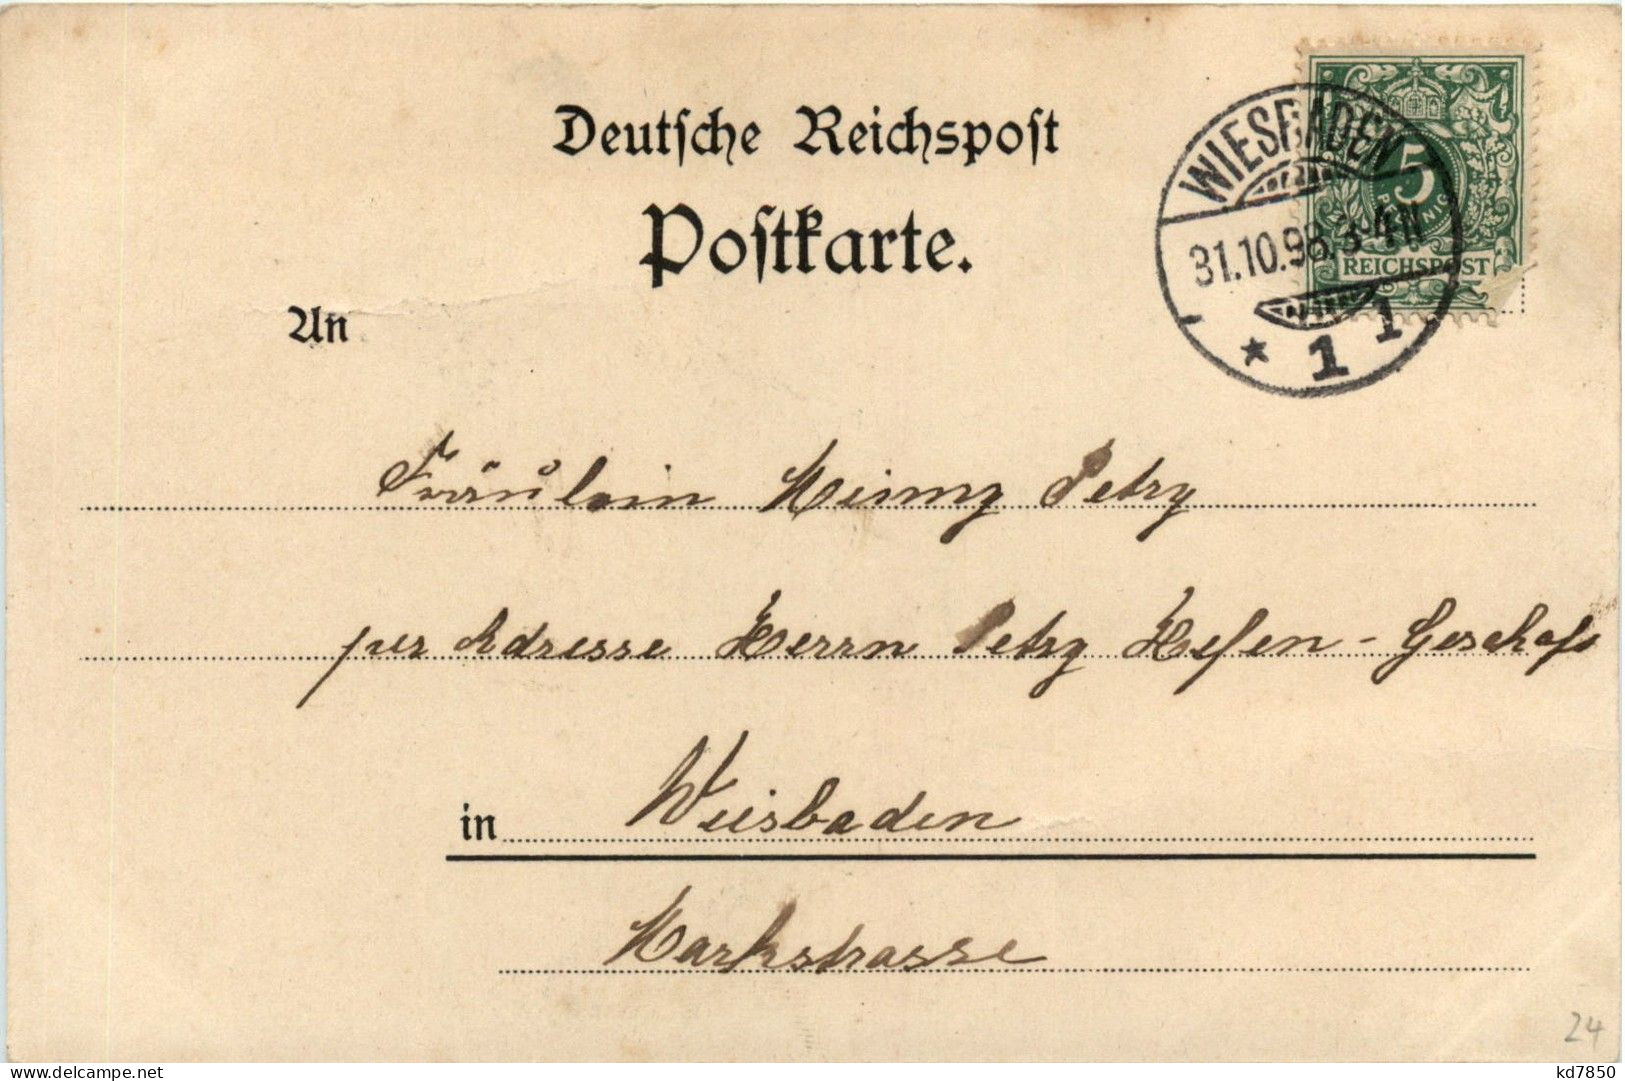 Deutsche Reichspost
Postkarte.
WIESBADEN
31.10.98. 3-4N
* 1 1
5
PFENNIG
REICHSPOST
An
Fräulein Minny Petry
per Adresse Herrn Petry Hefen-Geschäft
in Wiesbaden
Markstrasse
24
kd7850